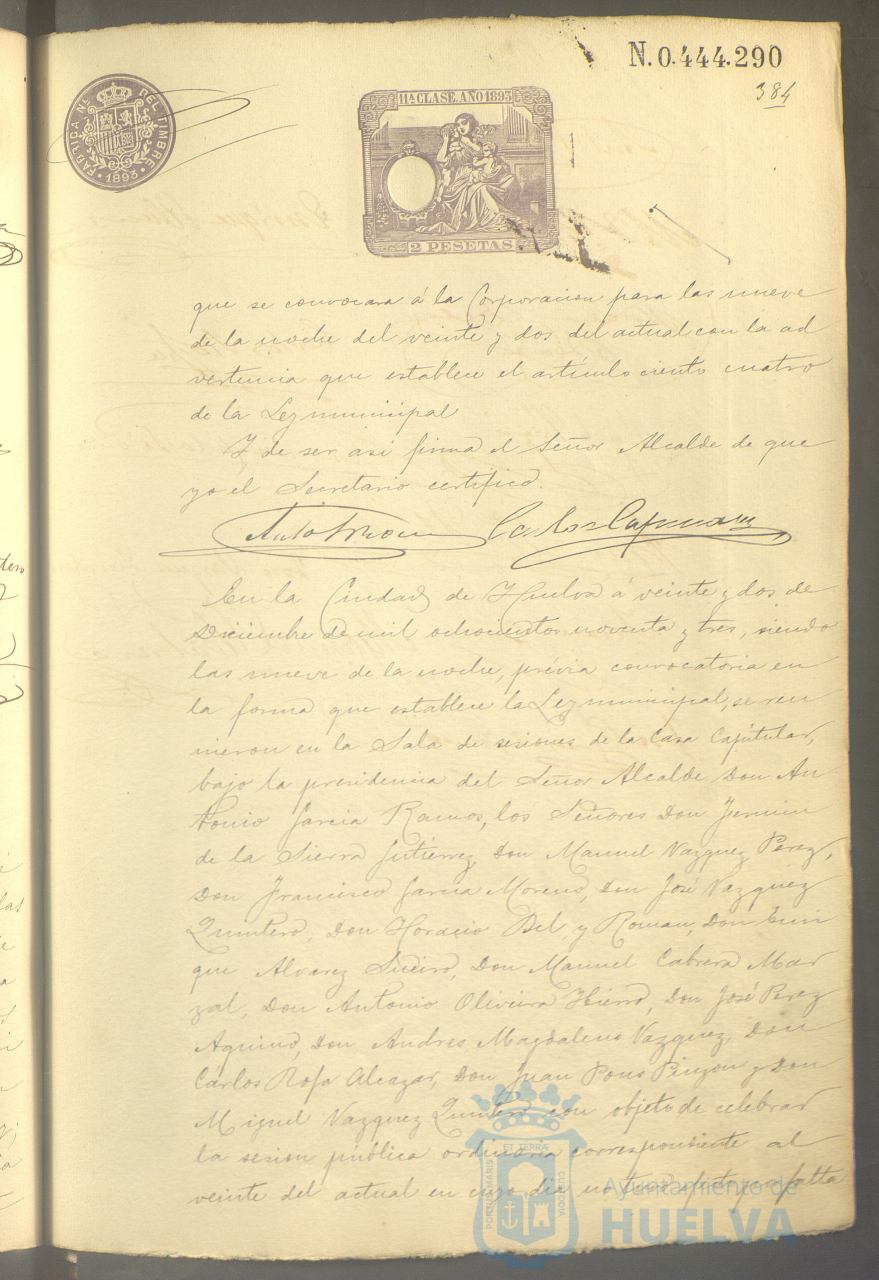 N. 0.444.290
384
FABRICA NL. DEL TIMBRE
1893
11ª CLASE. AÑO 1893
2 PESETAS
que se convocara á la Corporacion para las nueve
de la noche del veinte y dos del actual con la ad
vertencia que establece el artículo ciento cuatro
de la Ley municipal
Y de ser así firma el Señor Alcalde de que
yo el Secretario certifico.
En la Ciudad de Huelva á veinte y dos de
Diciembre de mil ochocientos noventa y tres, siendo
las nueve de la noche, prévia convocatoria en
la forma que establece la Ley municipal, se reu
nieron en la Sala de sesiones de la Casa Capitular,
bajo la presidencia del Señor Alcalde Don An
tonio Garcia Ramos, los Señores Don Fermin
de la Sierra Gutierrez, Don Manuel Vazquez Perez,
Don Francisco Garcia Moreno, Don José Vazquez
Quintero, Don Horacio Bel y Roman, Don Enri
que Alvarez Sueiro, Don Manuel Cabrera Mar
zal, Don Antonio Oliveira Hierro, Don José Perez
Aquino, Don Andres Magdaleno Vazquez, Don
Carlos Rofa Alcazar, Don Juan Pons Pinzon y Don
Miguel Vazquez Quintero con objeto de celebrar
la sesion pública ordinaria correspondiente al
veinte del actual en cuyo dia no tuvo efecto por falta
PORTUS MARIS ET TERRÆ CUSTODIA
Ayuntamiento de
HUELVA